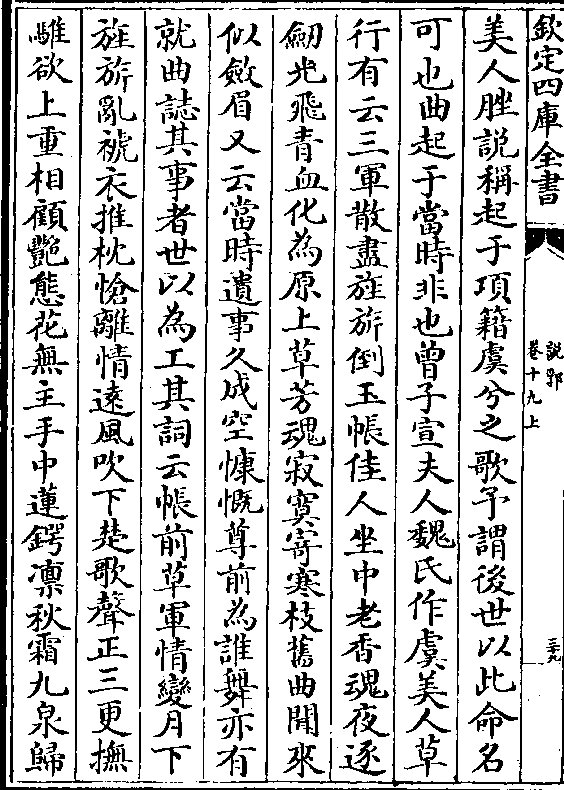 欽定四庫全書
說郛
卷十九上
三十九
美人脞説稱起于項籍虞兮之歌予謂後世以此命名
可也曲起于當時非也曾子宣夫人魏氏作虞美人草
行有云三軍散盡旌旂倒玉帳佳人坐中老香魂夜逐
劒光飛青血化為原上草芳魂寂寞寄寒枝舊曲聞來
似斂眉又云當時遺事久成空慷慨尊前為誰舞亦有
就曲誌其事者世以為工其詞云帳前草軍情變月下
旌旂亂褫衣推枕愴離情逺風吹下楚歌聲正三更撫
騅欲上重相顧艶態花無主手中蓮鍔凛秋霜九泉歸